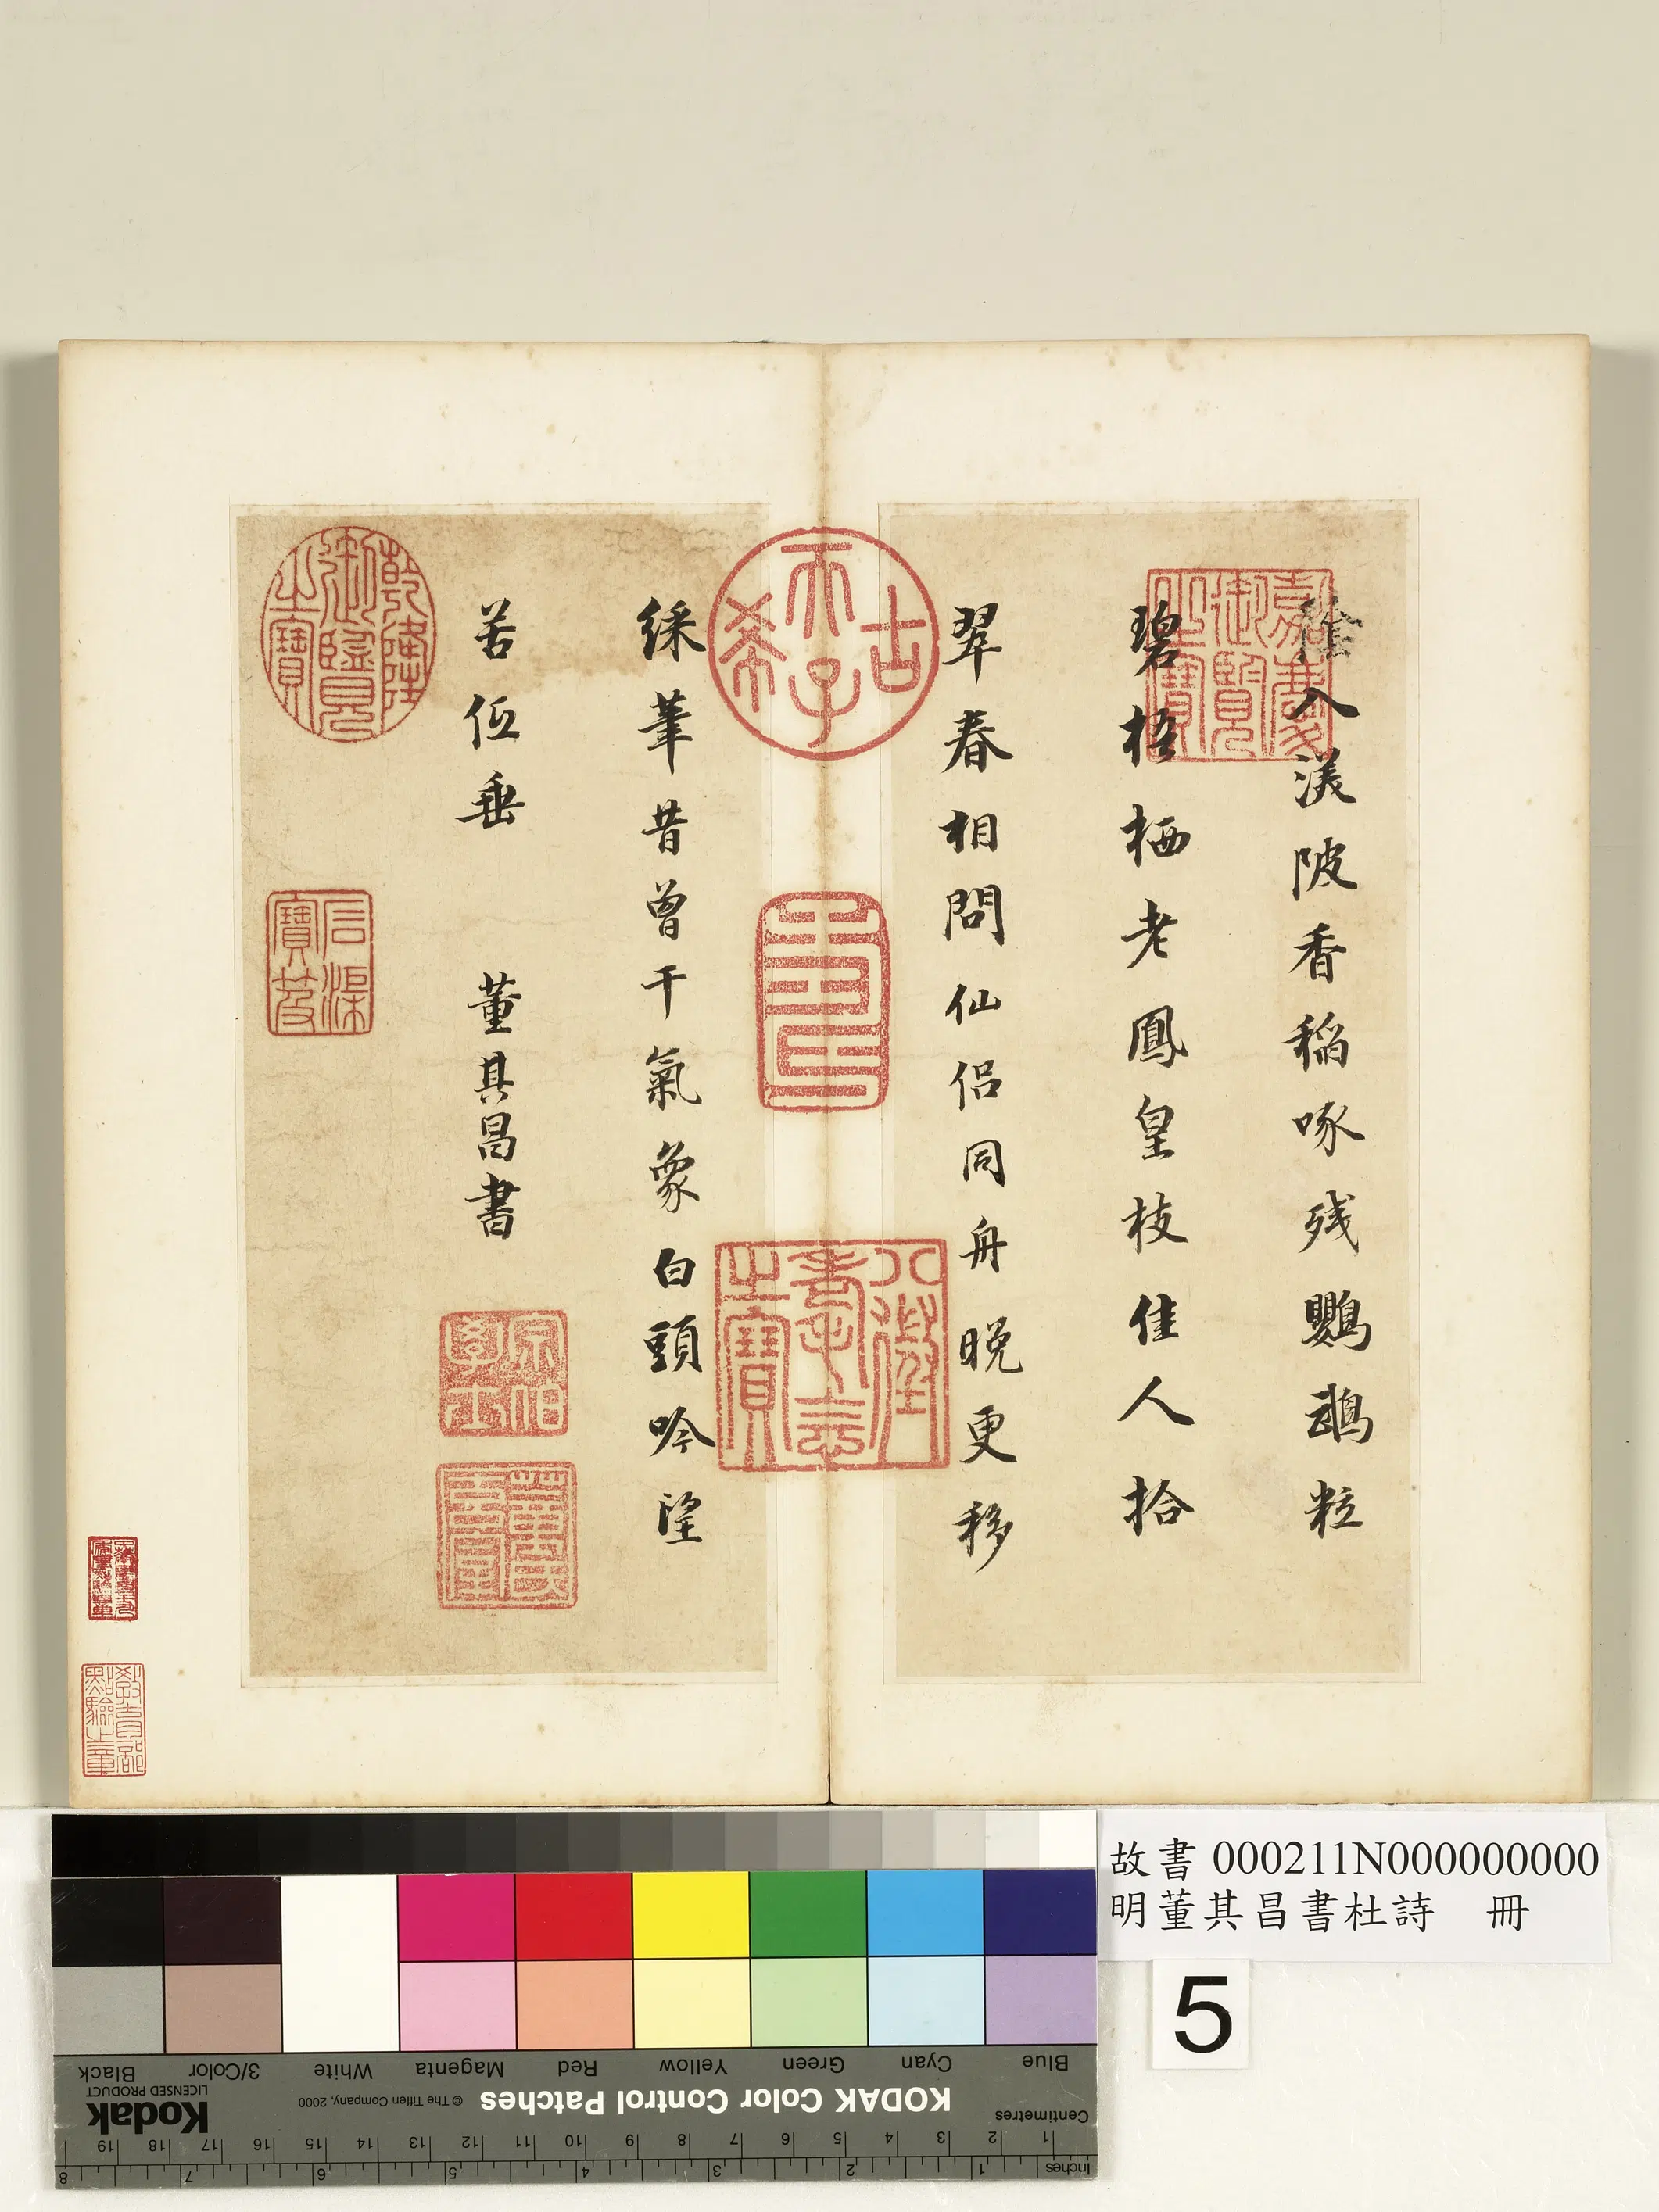 陰入渼陂香稲啄残鸚鵡粒
碧梧栖老鳳皇枝佳人拾
翠春相問仙侶同舟晚更移
綵筆昔曾干氣象白頭吟望
苦低垂 董其昌書
嘉慶御覽之寶
古希天子
壽
八徵耄念之寶
乾隆御覽之寶
石渠寶笈
宗伯學士
教育部點驗之章
故書 000211N000000000
明董其昌書杜詩 冊
5
Blue Cyan Green Yellow Red Magenta White 3/Color Black
KODAK Color Control Patches © The Tiffen Company, 2000
Kodak
LICENSED PRODUCT
Centimetres
1 2 3 4 5 6 7 8 9 10 11 12 13 14 15 16 17 18 19
Inches 1 2 3 4 5 6 7 8